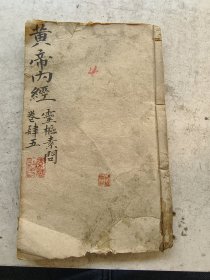 黄帝内經
靈樞素問
卷肆五